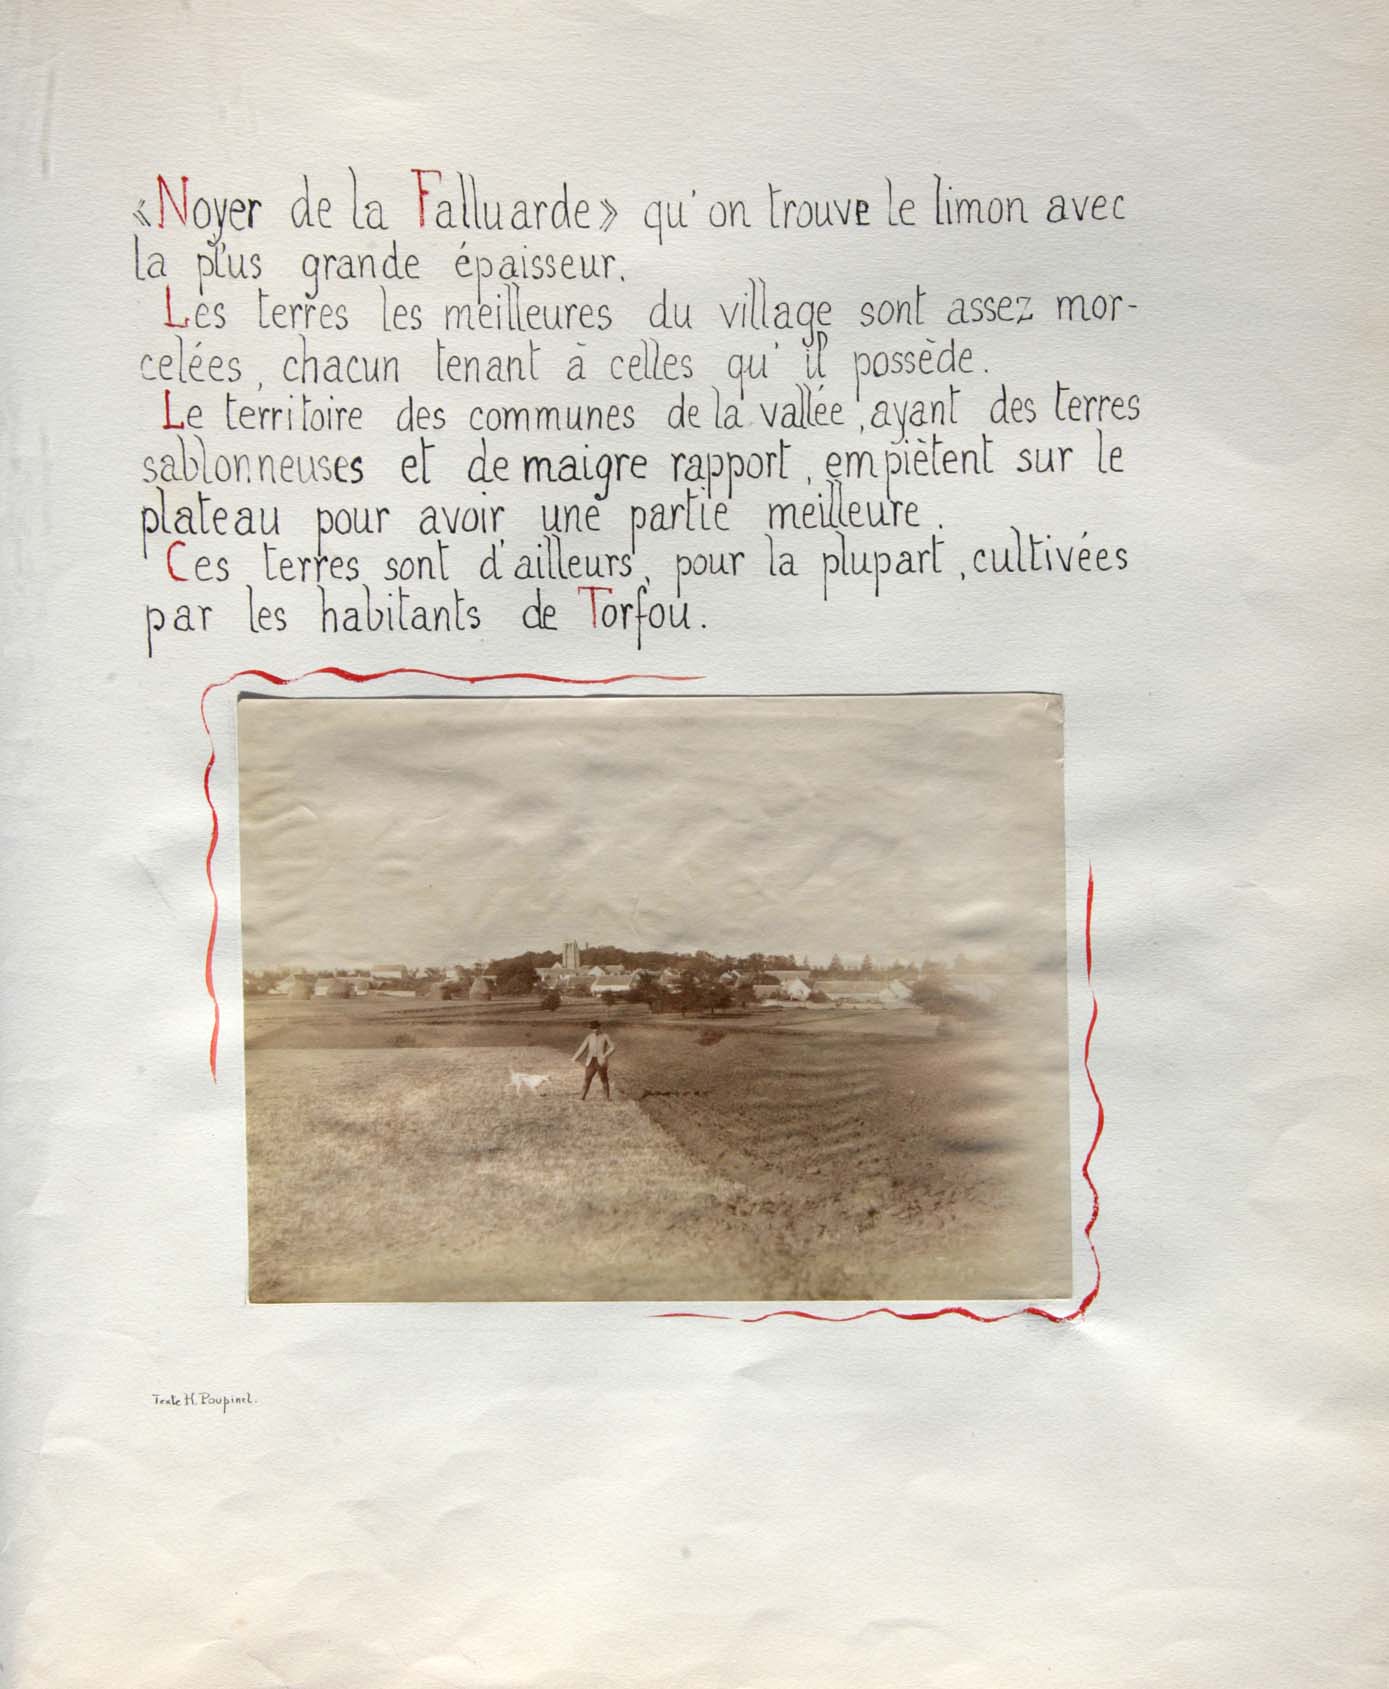 «Noyer de la Falluarde» qu'on trouve le limon avec
la plus grande épaisseur.
Les terres les meilleures du village sont assez mor-
celées, chacun tenant à celles qu'il possède.
Le territoire des communes de la vallée, ayant des terres
sablonneuses et de maigre rapport, empiètent sur le
plateau pour avoir une partie meilleure.
Ces terres sont d'ailleurs, pour la plupart, cultivées
par les habitants de Torfou.
Texte H. Poupinel.